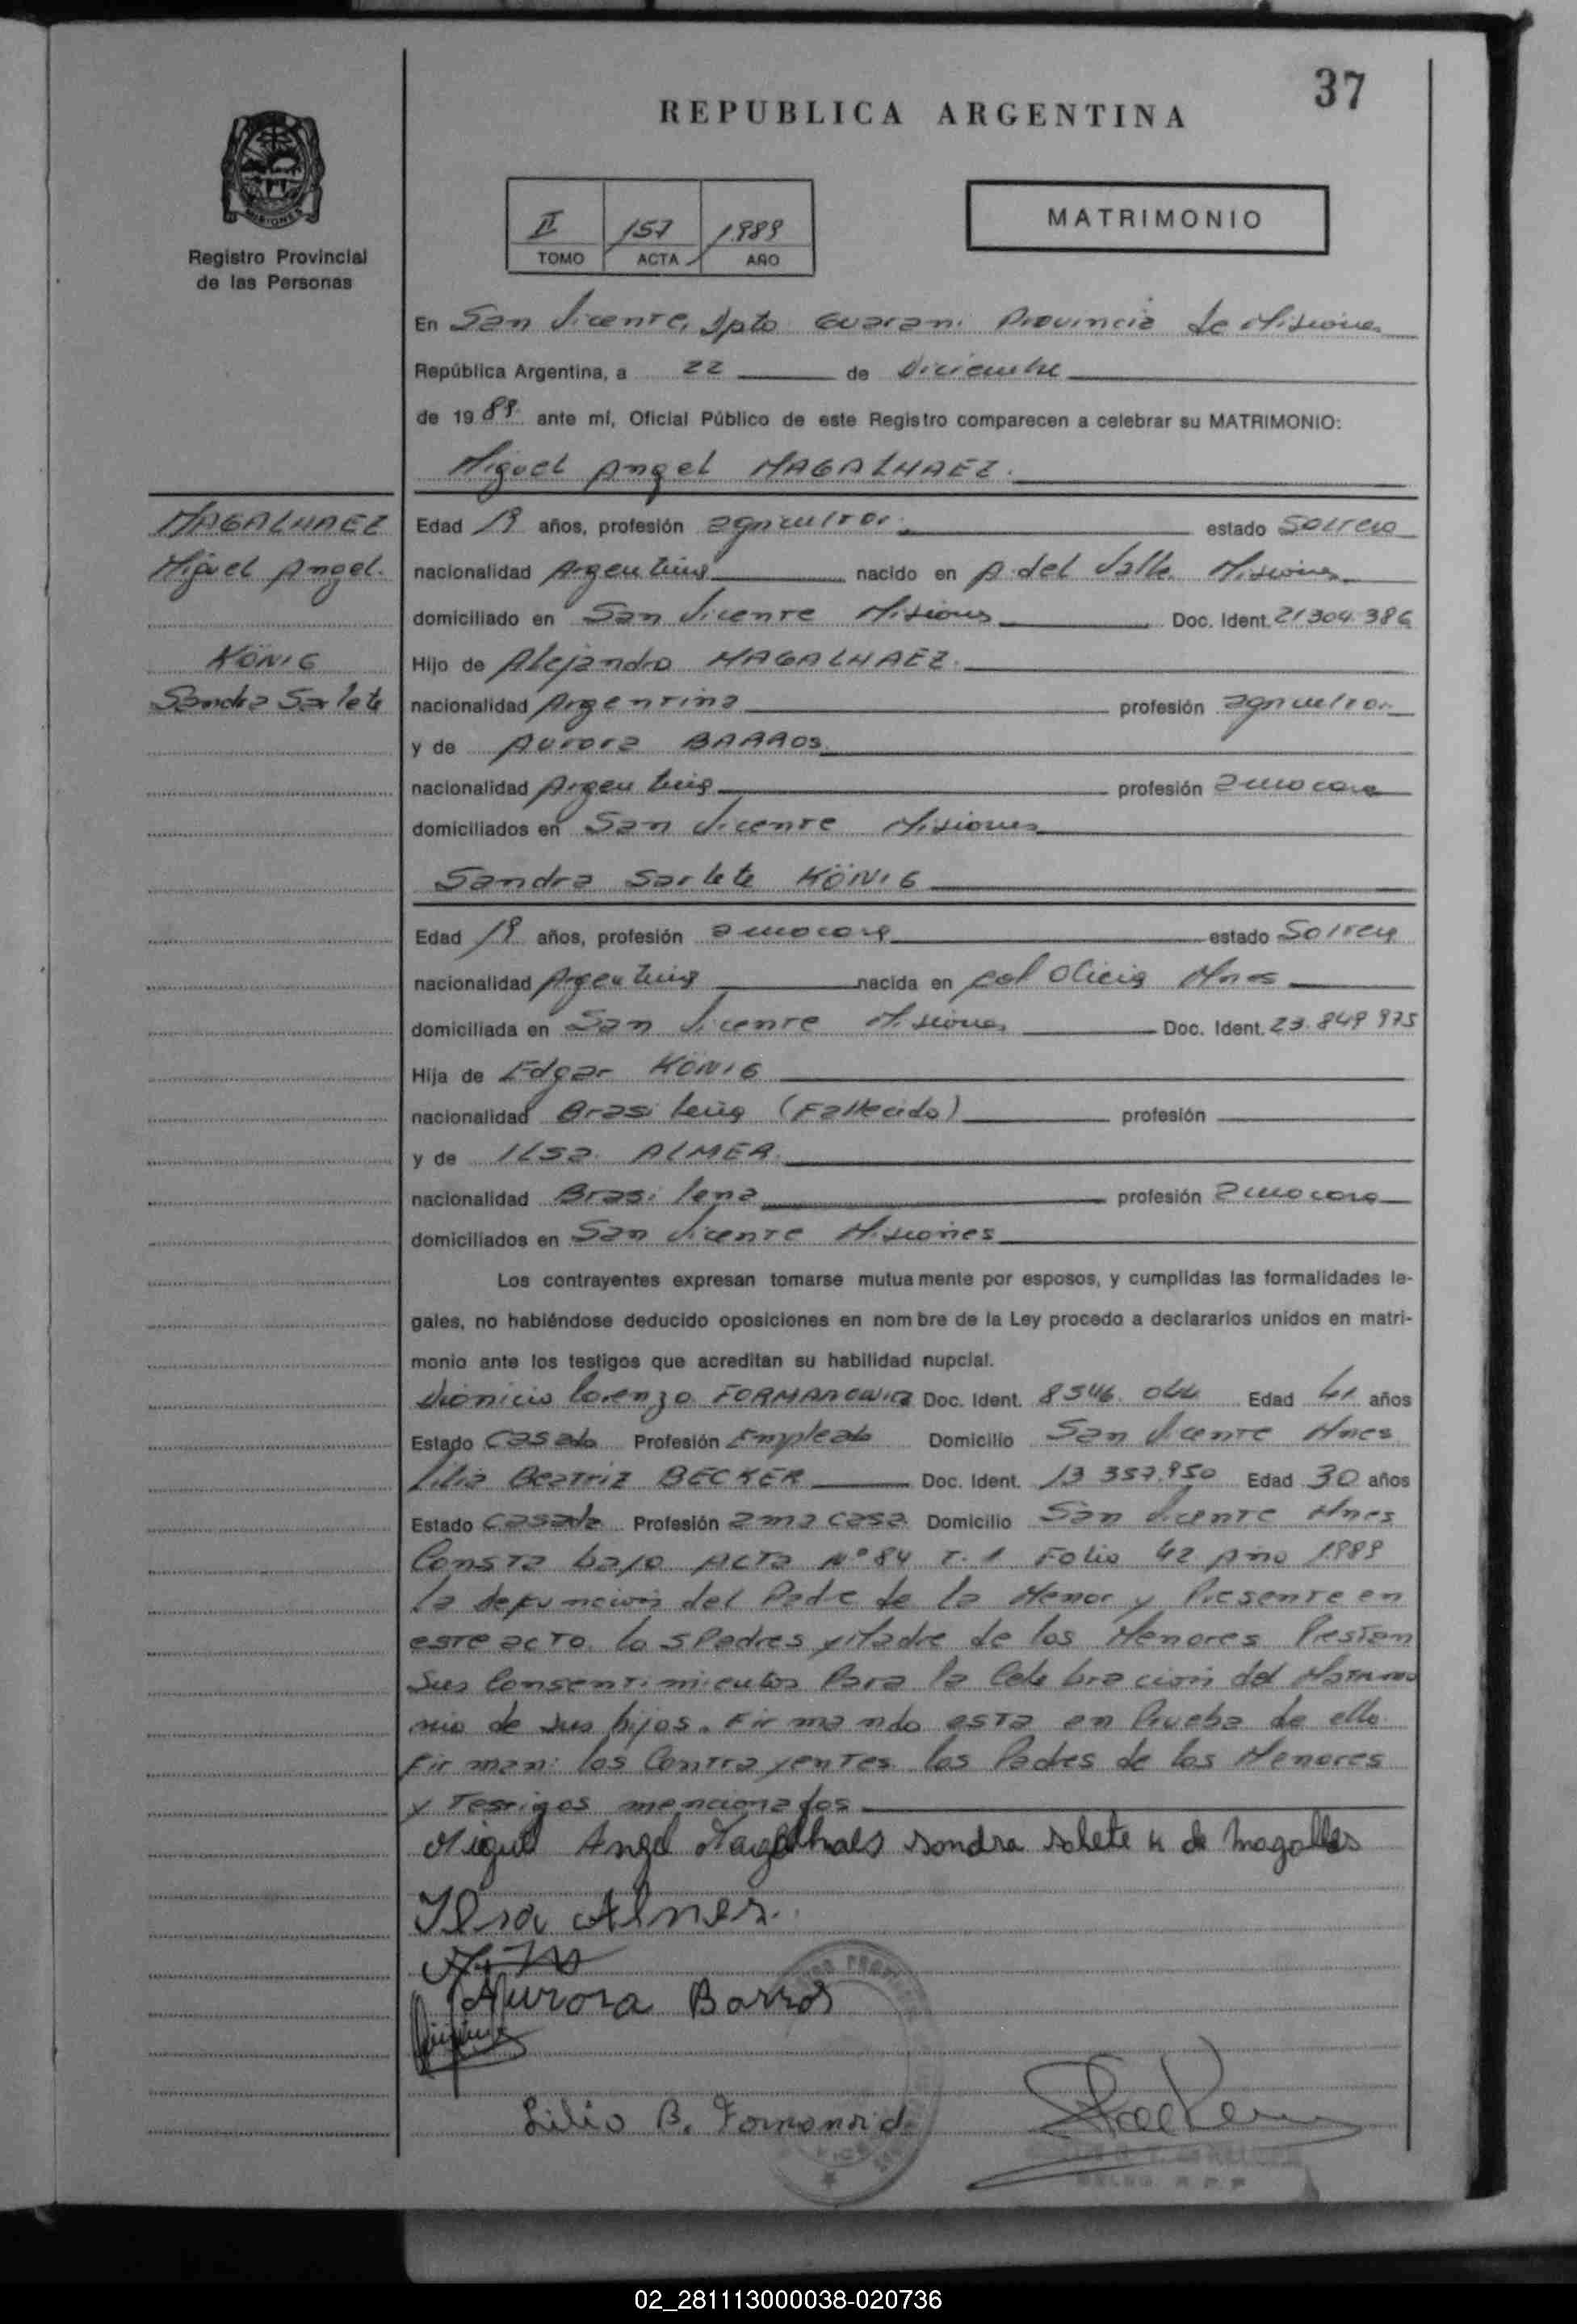 37
REPUBLICA ARGENTINA
MISIONES
Registro Provincial
de las Personas
II 157 1989
TOMO ACTA AÑO
MATRIMONIO
En San Vicente, Dpto Guarani Provincia de Misiones
República Argentina, a 22 de Diciembre
de 19 89 ante mí, Oficial Público de este Registro comparecen a celebrar su MATRIMONIO:
Miguel Angel MAGALHAEZ.
MAGALHAEZ
Miguel Angel.
KÖNIG
Sandra Sarlete
Edad 19 años, profesión agricultor estado Soltero
nacionalidad Argentina nacido en A. del Valle Misiones
domiciliado en San Vicente Misiones Doc. Ident. 21304.386
Hijo de Alejandro MAGALHAEZ.
nacionalidad Argentina profesión agricultor
y de Aurora BARROS
nacionalidad Argentina profesión ama casa
domiciliados en San Vicente Misiones
Sandra Sarlete KÖNIG
Edad 19 años, profesión ama casa estado Soltera
nacionalidad Argentina nacida en Col Alicia Mnes
domiciliada en San Vicente Misiones Doc. Ident. 23.849 975
Hija de Edgar KÖNIG
nacionalidad Brasileña (Fallecido) profesión
y de Ilsa ALMER.
nacionalidad Brasilena profesión ama casa
domiciliados en San Vicente Misiones
Los contrayentes expresan tomarse mutua mente por esposos, y cumplidas las formalidades le-
gales, no habiéndose deducido oposiciones en nom bre de la Ley procedo a declararlos unidos en matri-
monio ante los testigos que acreditan su habilidad nupcial.
Dionicio Lorenzo Doc. Ident. 8546. 044 Edad 41 años
Estado Casado Profesión Empleado Domicilio San Vicente Mnes
Lilia Beatriz BECKER Doc. Ident. 13 357.950 Edad 30 años
Estado Casada Profesión ama casa Domicilio San Vicente Mnes
Consta bajo Acta Nº 84 T. 1 Folio 42 Año 1989
la defuncion del Padre de la Menor y Presente en
este acto los Padres y Madre de los Menores Prestan
Sus Consentimientos Para la Celebracion del Matrimo
nio de sus hijos. Firmando esta en Prueba de ello
Firman: los Contrayentes los Padres de los Menores
y Testigos mencionados
Miguel Angel Magalhaes sandra salete K de Magalles
Ilsa Almer.
Aurora Barros
Lilia B.
02_281113000038-020736